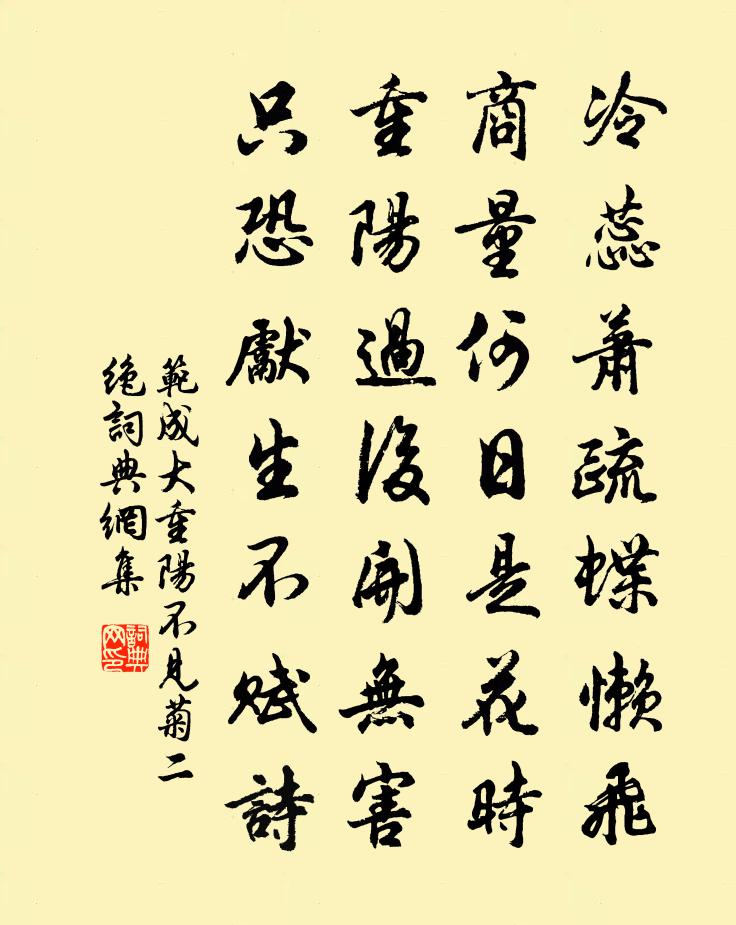 冷蕊蕭疏蝶懶飛
商量何日是花時
重陽過後開無害
只恐獻生不賦詩
範成大重陽不見菊二
絶詞典網集
詞典
网印